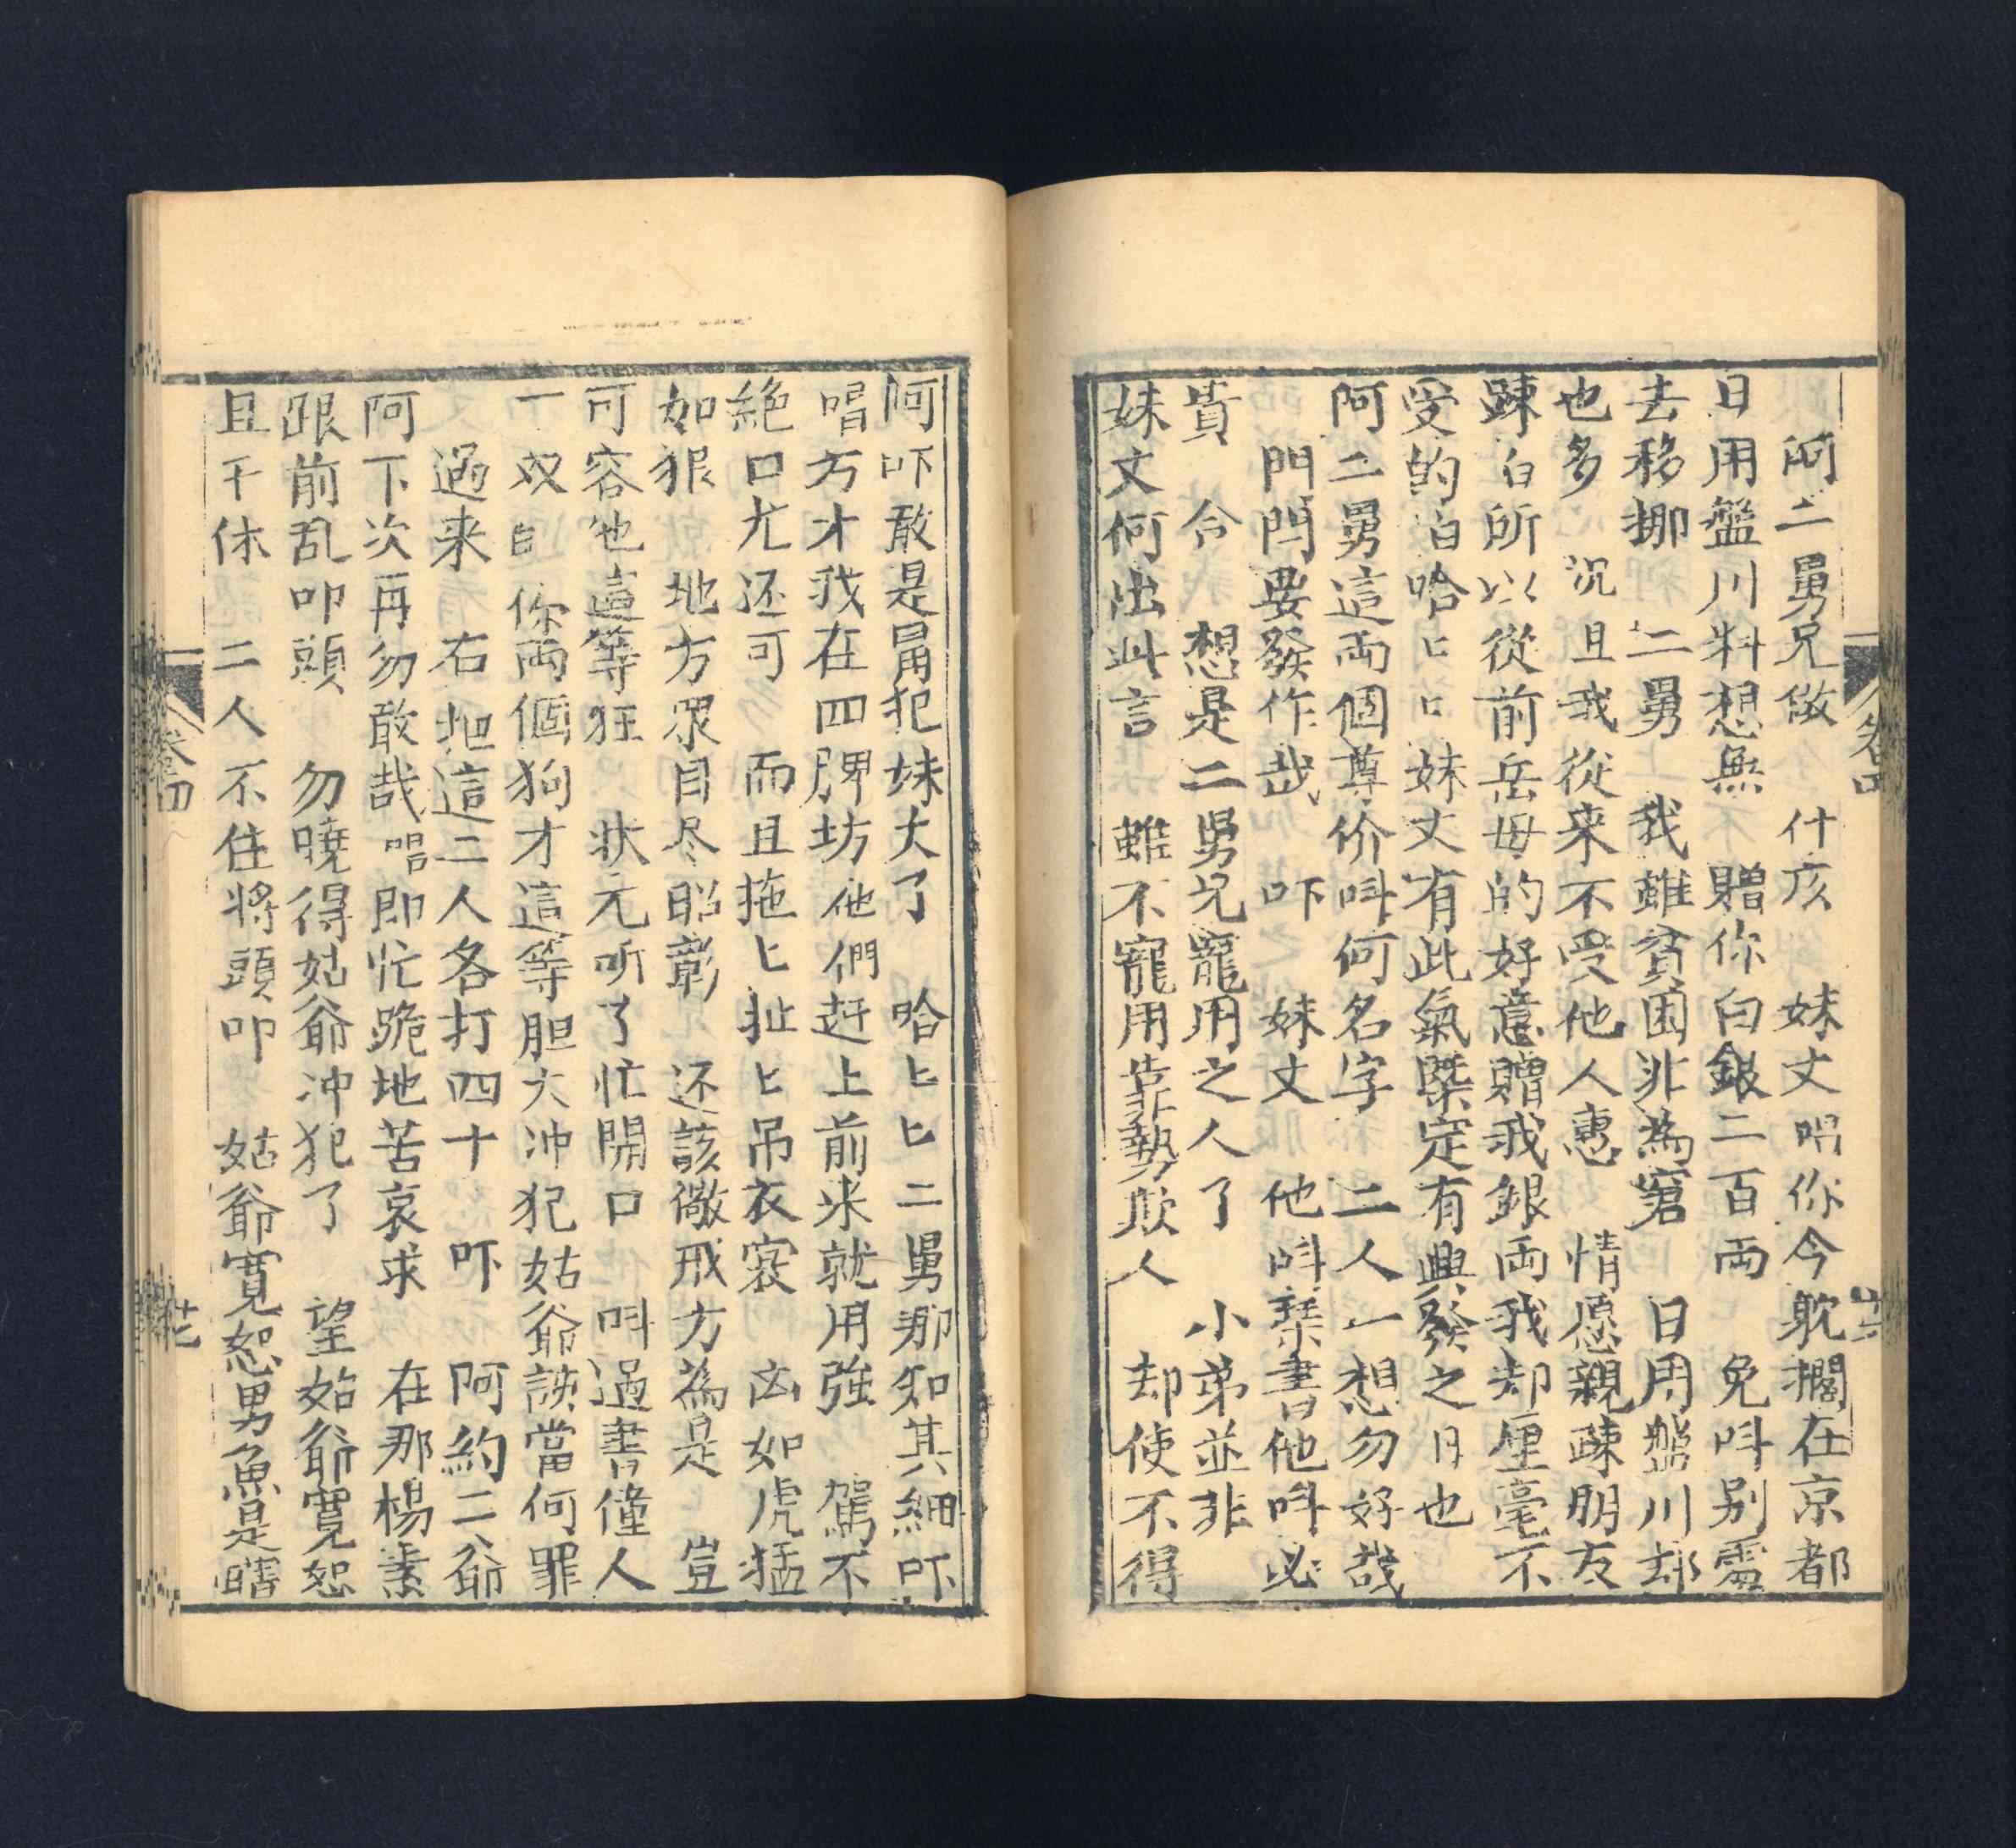 阿二舅兄做　什亥　妹丈唱你今躭擱在京都
日用盤川料想無　贈你白銀二百両　免呌别處
去移挪　二舅　我雖貧困非為窘　日用盤川却
也多　沉且我從来不受他人惠　情愿親踈朋友
踈白所以從前岳母的好意贈我銀両我却厘毫不
受的白哈匕匕妹丈有此氣槩定有興發之日也
阿二舅這両個尊价呌何名字　二人一想勿好哉
門閂要發作哉　吓　妹丈　他呌琹書他呌必
貴　今　想是二舅兄寵用之人了　小弟並非
妹丈何出此言　雖不寵用靠勢欺人　却使不得
卷四
阿吓敢是冐犯妹丈了　哈匕匕二舅那知其細吓
唱方才我在四脾坊他們赶上前来就用強　駡不
絶口尤还可　而且拖匕扯匕吊衣裳　凶如虎猛
如狠　地方眾目尽昭彰　还該儆戒方為是　豈
可容他這等狂　状元听了忙開口　呌過書僮人
一双白　你両個狗才這等胆大冲犯姑爺該當何罪
過来　右　把這二人各打四十　吓　阿約二爺
阿下次再勿敢哉唱即忙跪地苦哀求　在那楊素
跟前乱叩頭　勿曉得姑爺冲犯了　望姑爺寛恕
且干休　二人不住將頭叩　姑爺寛恕男魚是瞎
卷四
廿七